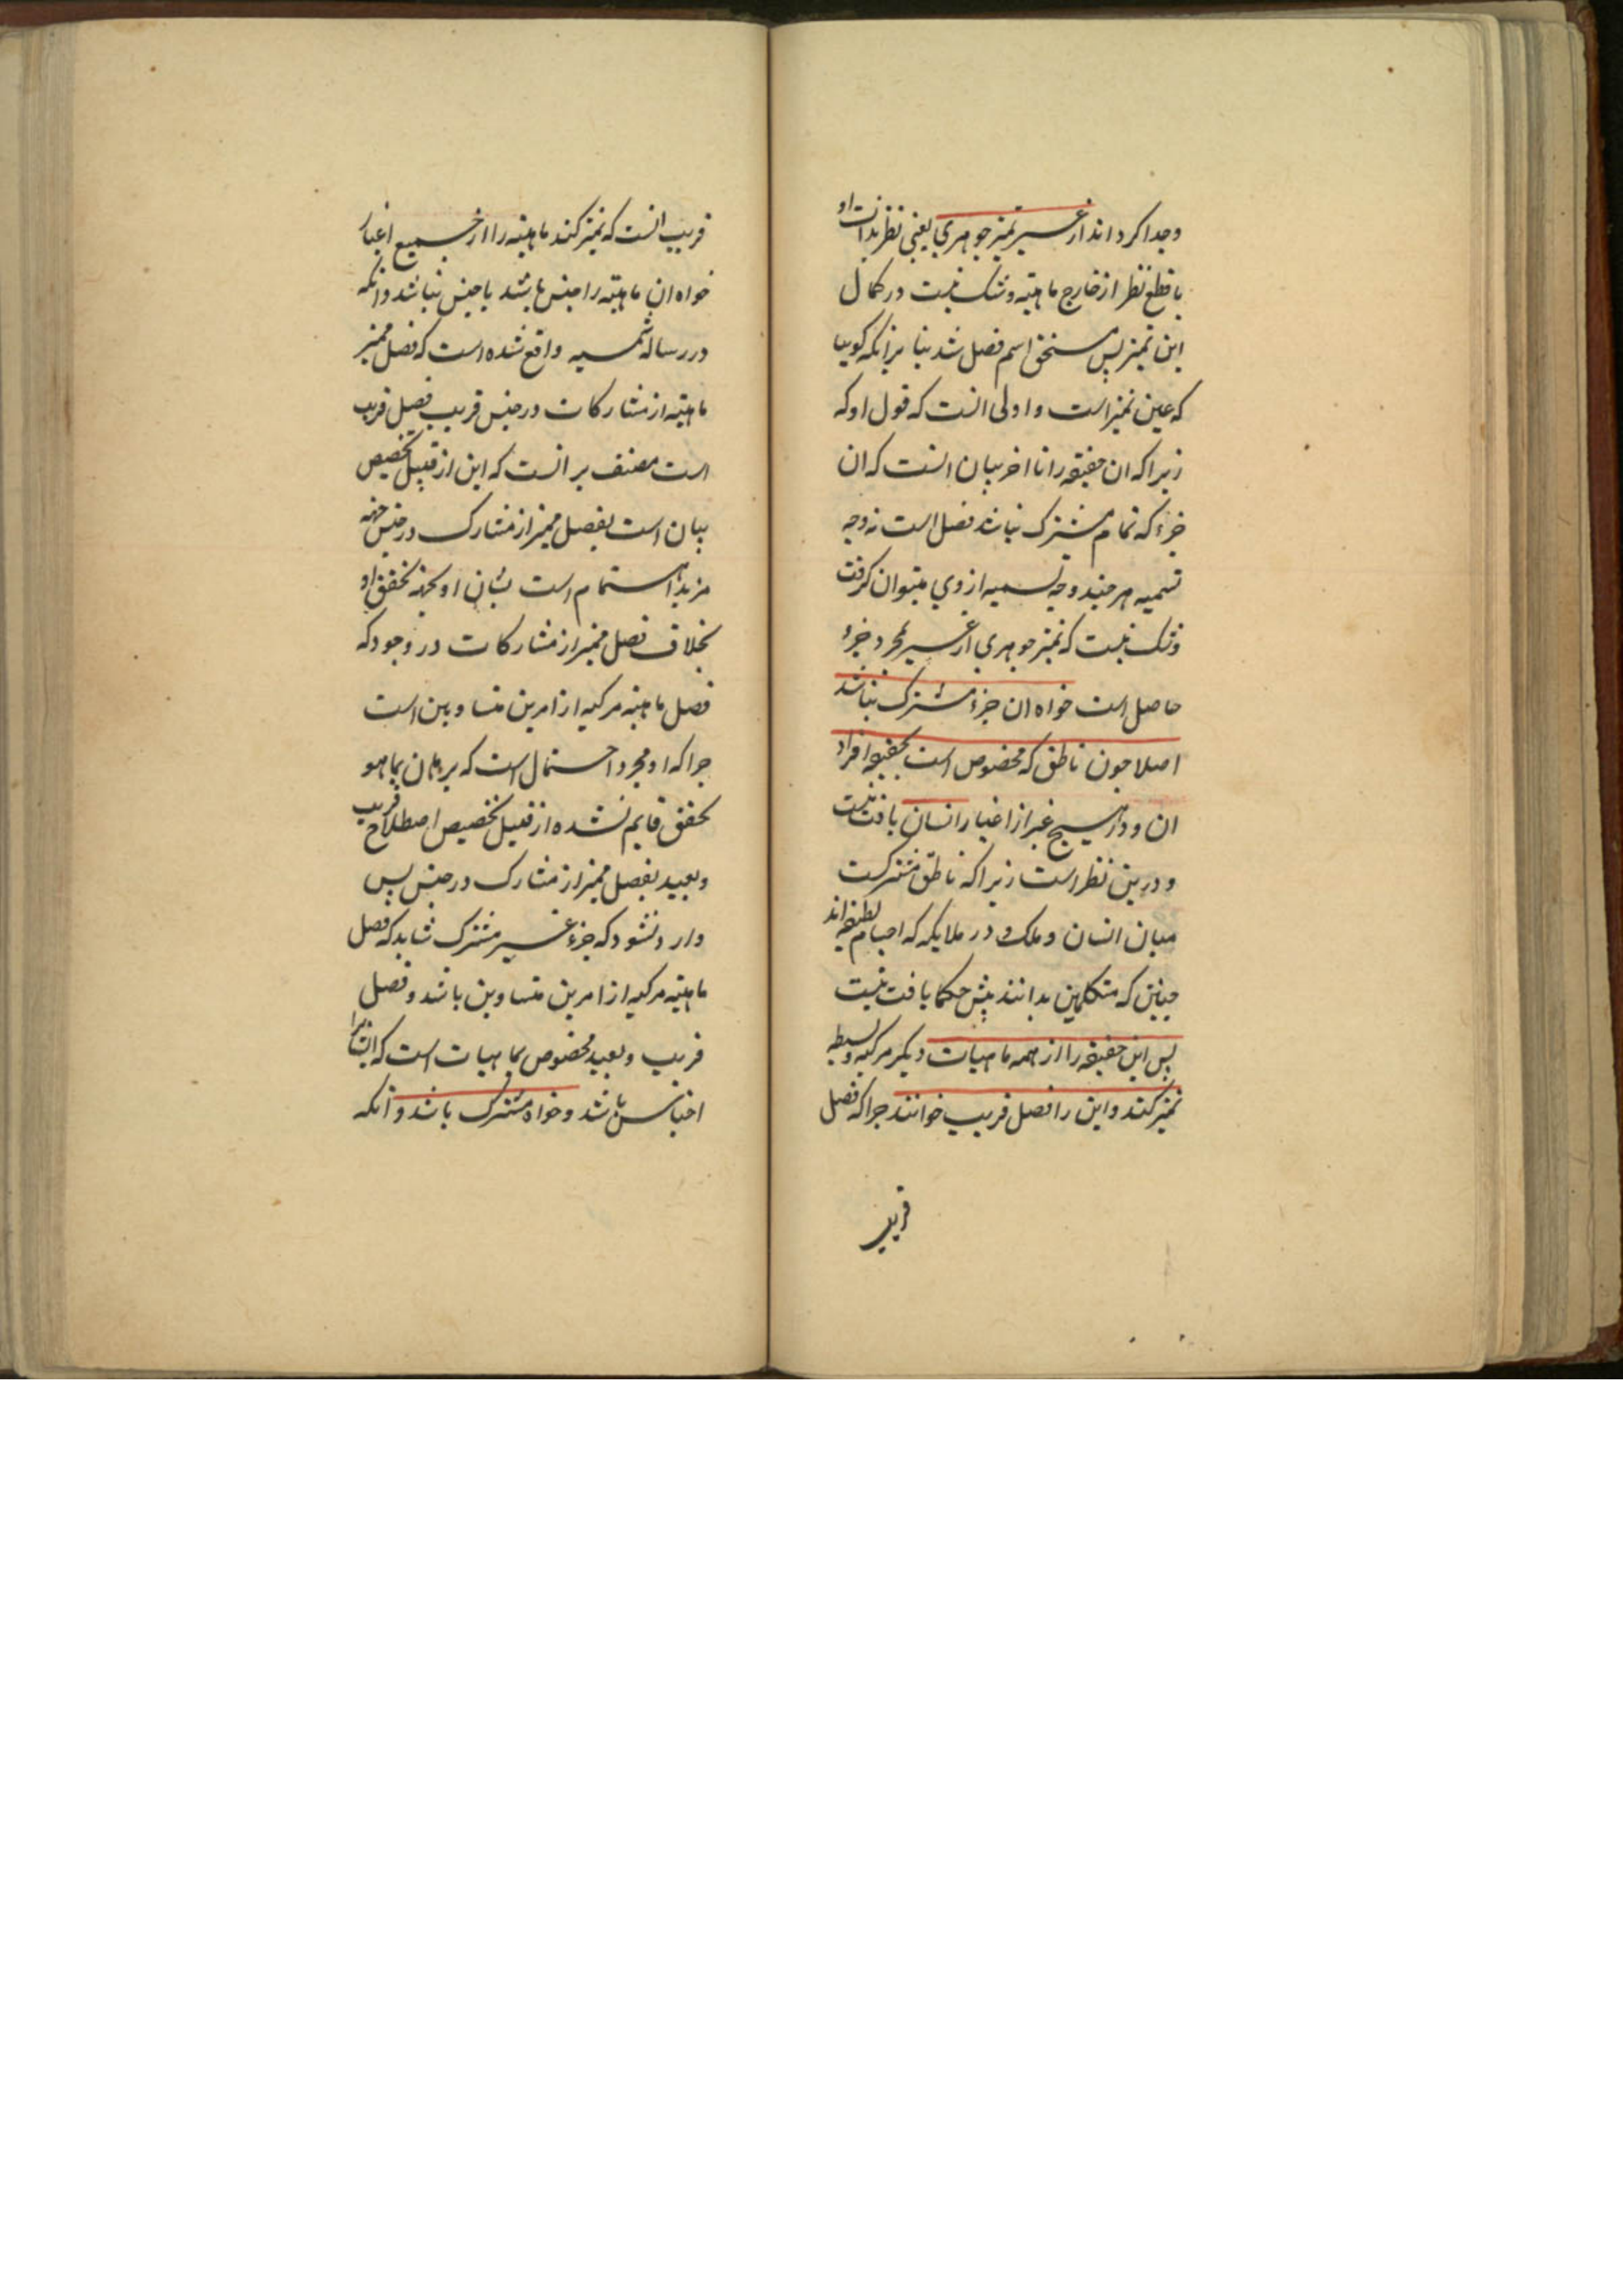 وجدا کرداند از غیر تمیز جوهری یعنی نظر بذات او
با قطع نظر از خارج ماهیته و شک نیست در کمال
این تمیز پس مستحق اسم فصل شد بنا برانکه کویا
که عین تمیز است و اولی انست که قول او که
زیرا که ان حقیقه را تا اخر بیان انست که ان
جزء که تمام مشترک نباشد فصل است نه وجه
تسمیه هر چند وجه تسمیه از وی میتوان کرفت
و شک نیست که تمیز جوهری از غیر بمجرد جزء
حاصل است خواه ان جزء مشترک نباشد
اصلا چون ناطق که مخصوص است بحقیقه افراد
ان و در هیچ غیر از اغیار انسان یافت نیست
و درین نظر است زیرا که ناطق مشترکست
میان انسان و ملک و در ملایکه که اجسام لطیفه اند
چنین که متکلمین بدانند پیش حکما یافت نیست
پس این حقیقه را از همه ماهیات دیکر مرکبه و بسیطه
تمیز کند و این را فصل قریب خوانند چرا که فصل
قریب
قریب انست که تمیز کند ماهیته را از جمیع اغیار
خواه ان ماهیته را جنس باشد یا جنس نباشد و انکه
در رساله شمسیه واقع شده است که فصل ممیز
ماهیته از مشارکات در جنس قریب فصل قریب
است مصنف بر انست که این از قبیل تخصیص
بیان است بفصل ممیز از مشارک در جنس جهه
مزید اهتمام است بشان او بجهه تحقق او
بخلاف فصل ممیز از مشارکات در وجود که
فصل ماهیته مرکبه از امرین متساویین است
چرا که او مجرد احتمال است که برهان بما هو
تحقق قایم نشده از قبیل تخصیص اصطلاح قریب
وبعید بفصل ممیز از مشارک در جنس پس
وارد نشود که جزء غیر مشترک شاید که فصل
ماهیته مرکبه از امرین متساوین باشد و فصل
قریب و بعید مخصوص بماهیات است که انرا
اجناس باشد و خواه مشترک باشد و انکه